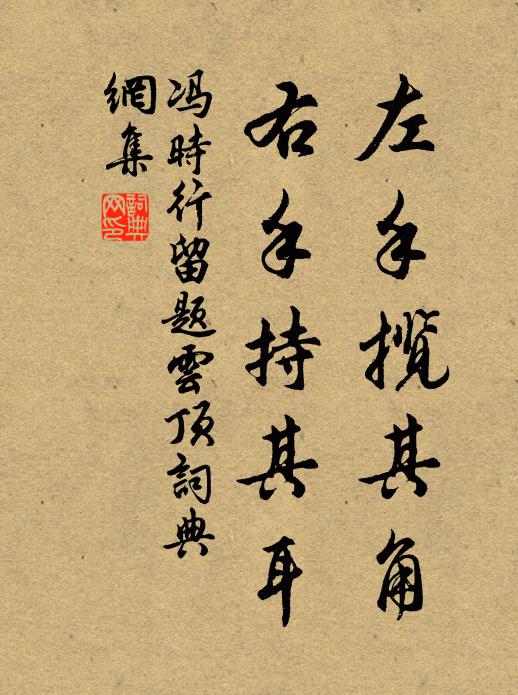 左手揽其角
右手持其耳
冯時行留题雲顶詞典
網集
詞典
网印